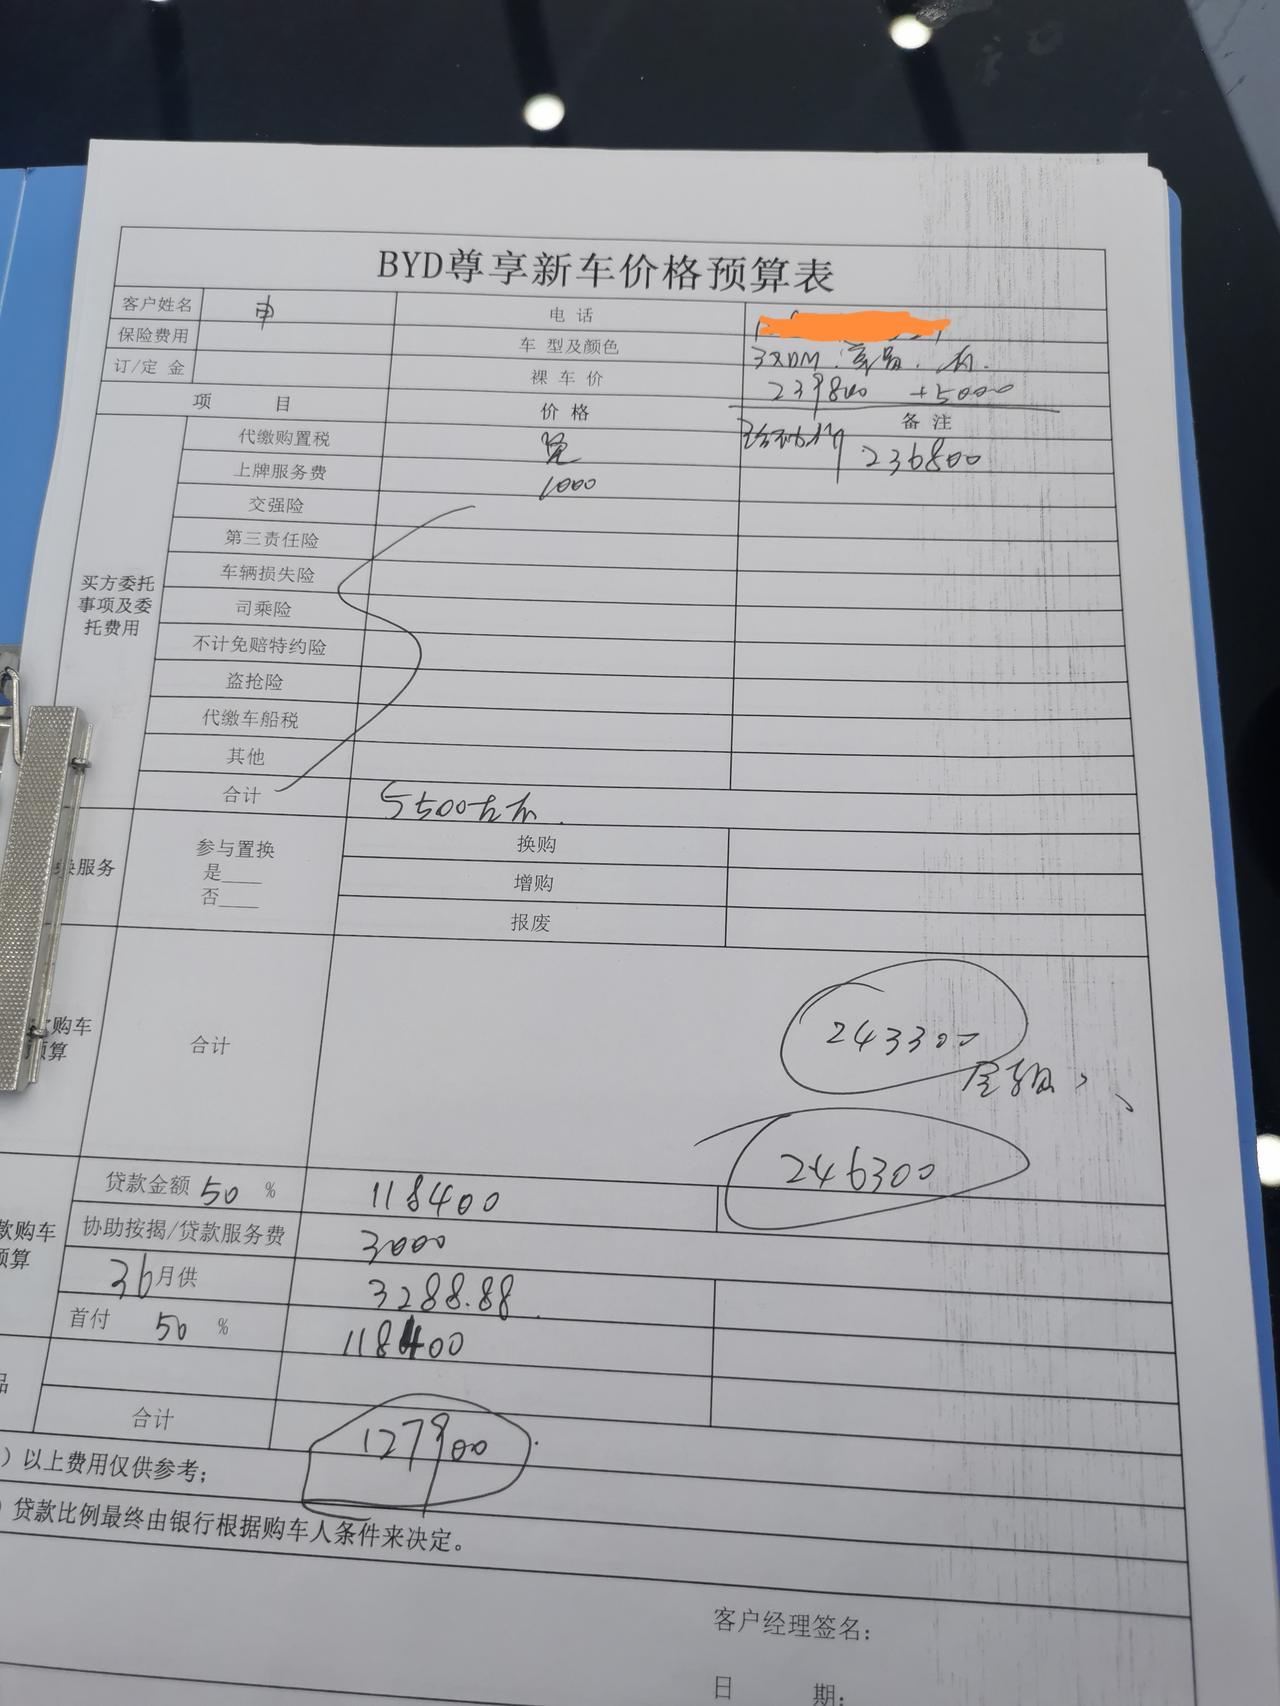 BYD尊享新车价格预算表
客户姓名 申 电 话
保险费用 车 型及颜色
订/定 金 裸 车 价 239800 +5000
项 目 价 格 备 注
买方委托事项及委托费用
代缴购置税 免 236800
上牌服务费 1000
交强险
第三责任险
车辆损失险
司乘险
不计免赔特约险
盗抢险
代缴车船税
其他
合计 5500左右
换服务 参与置换 换购
是____ 增购
否____ 报废
购车
预算 合计 243300
246300
贷款金额 50 % 118400
款购车 协助按揭/贷款服务费 3000
预算 36月供 3288.88
首付 50 % 118400
品
合计 127900
）以上费用仅供参考；
）贷款比例最终由银行根据购车人条件来决定。
客户经理签名：
日 期：